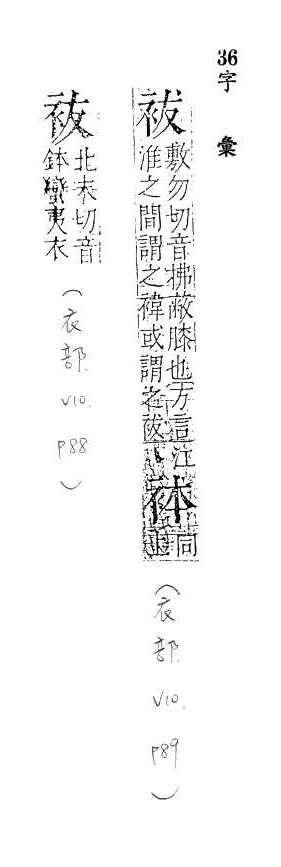 36字 彙
袚
敷勿切音拂蔽膝也方言江
淮之間謂之褘或謂之袚
同
上
(衣部. V10. P89)
袚
北末切音
鉢蠻夷衣
(衣部. V10. P88)